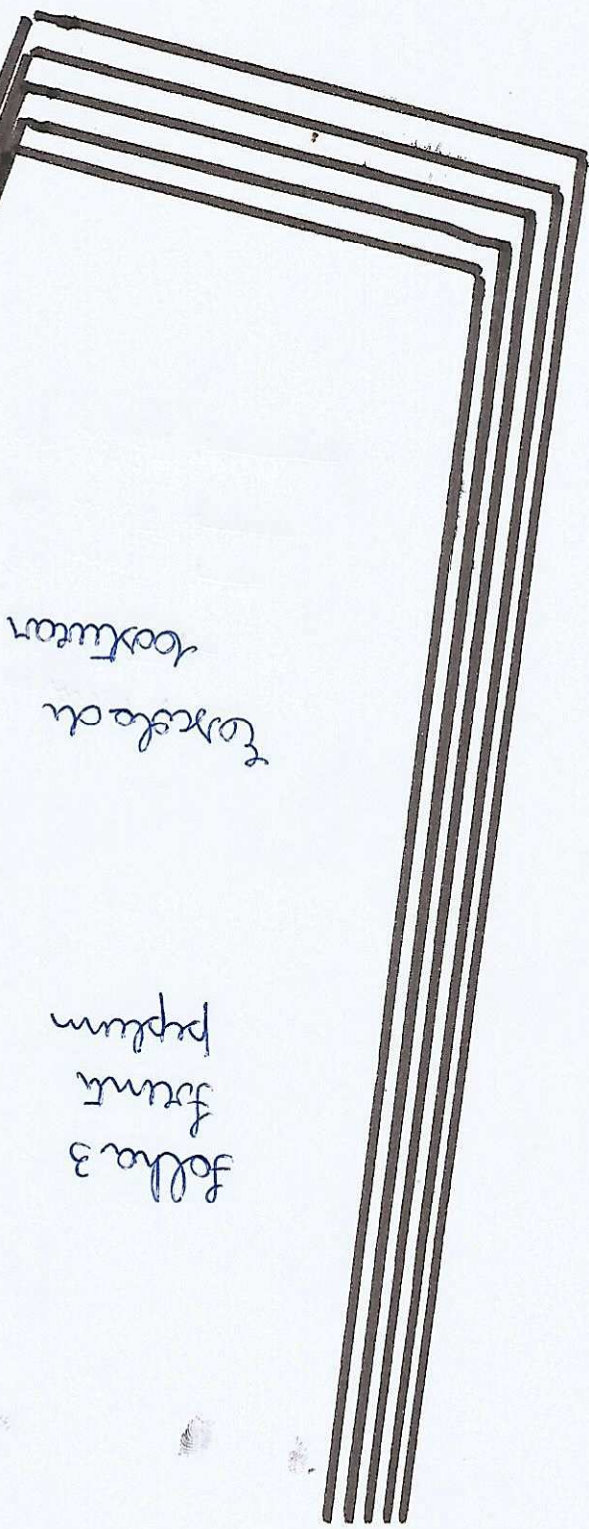 folha 3
frente
peplum
Escola de
costura